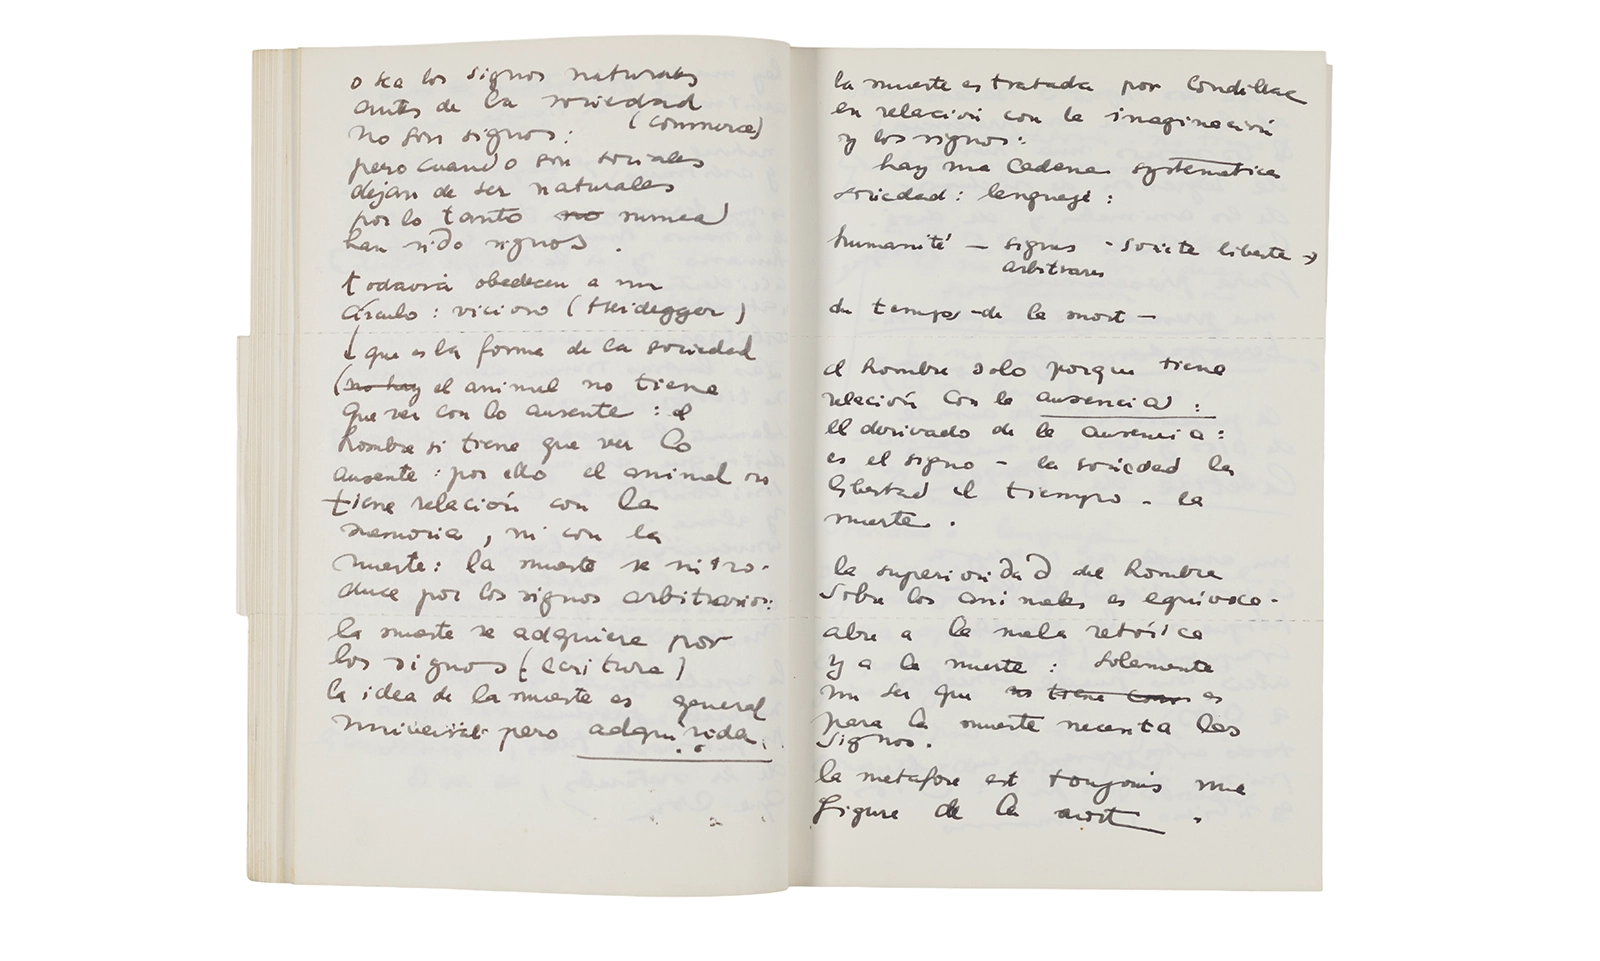 o sea los signos naturales
antes de la sociedad
(commerce)
no son signos:
pero cuando son sociales
dejan de ser naturales
por lo tanto no nunca
han sido signos.
todavía obedecen a un
círculo: vicioso (Heidegger)
que es la forma de la sociedad
(no hay el animal no tiene
que ver con lo ausente: el
hombre si tiene que ver lo
ausente: por ello el animal no
tiene relación con la
memoria, ni con la
muerte: la muerte se intro-
duce por los signos arbitrarios:
la muerte se adquiere por
los signos (ecriture)
la idea de la muerte es general
universal pero adquirida.
la muerte es tratada por Condillac
en relación con la imaginación
y los signos:
hay una cadena systematica
sociedad: lenguaje:
humanité – signes - societe liberte →
arbitraires
du temps - de la mort –
el hombre solo porque tiene
relación con la ausencia:
el derivado de la ausencia:
es el signo – la sociedad la
libertad el tiempo - la
muerte.
la superioridad del hombre
sobre los animales es equivoca -
abre a la mala retórica
y a la muerte: solamente
un ser que no tiene como es
para la muerte necesita los
signos.
la metafore est toujours une
figure de la mort.